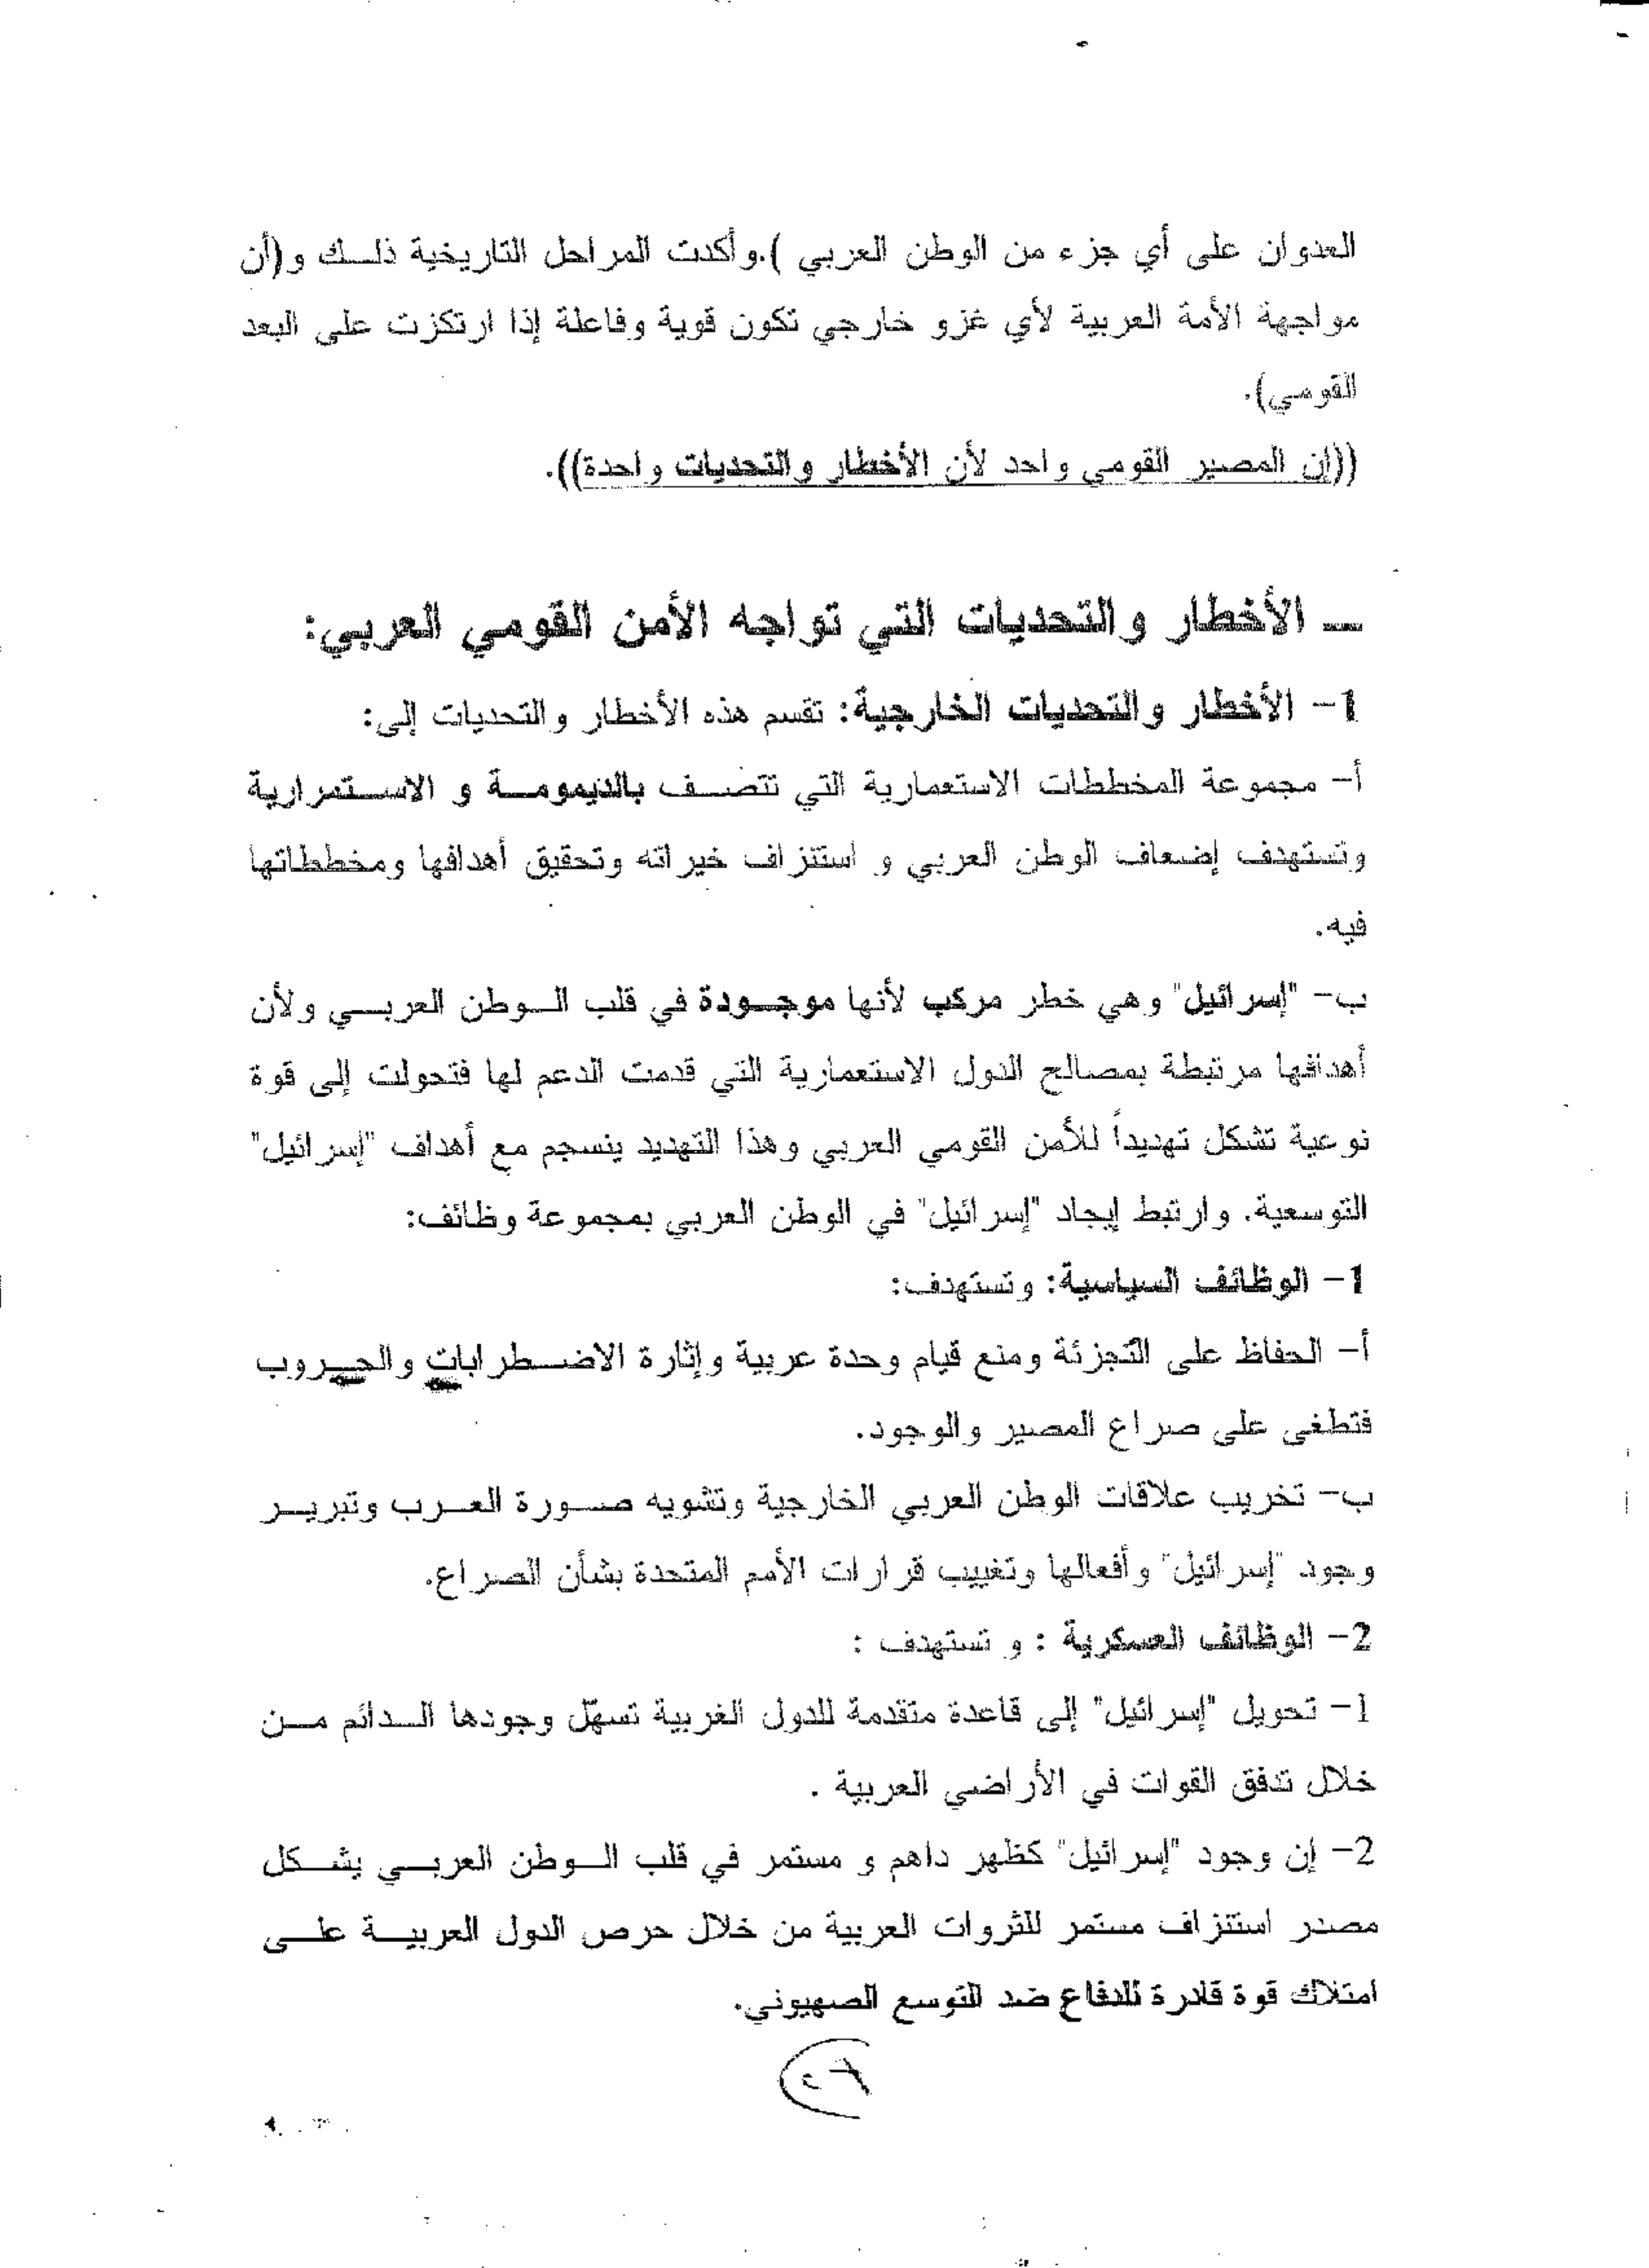 العدوان على أي جزء من الوطن العربي ).وأكدت المراحل التاريخية ذلك و(أن
مواجهة الأمة العربية لأي غزو خارجي تكون قوية وفاعلة إذا ارتكزت على البعد
القومي).
((إن المصير القومي واحد لأن الأخطار والتحديات واحدة)).
ــ الأخطار والتحديات التي تواجه الأمن القومي العربي:
1- الأخطار والتحديات الخارجية: تقسم هذه الأخطار والتحديات إلى:
أ- مجموعة المخططات الاستعمارية التي تتصف بالديمومة و الاستمرارية
وتستهدف إضعاف الوطن العربي و استنزاف خيراته وتحقيق أهدافها ومخططاتها
فيه.
ب- "إسرائيل" وهي خطر مركب لأنها موجودة في قلب الوطن العربي ولأن
أهدافها مرتبطة بمصالح الدول الاستعمارية التي قدمت الدعم لها فتحولت إلى قوة
نوعية تشكل تهديداً للأمن القومي العربي وهذا التهديد ينسجم مع أهداف "إسرائيل"
التوسعية. وارتبط إيجاد "إسرائيل" في الوطن العربي بمجموعة وظائف:
1- الوظائف السياسية: وتستهدف:
أ- الحفاظ على التجزئة ومنع قيام وحدة عربية وإثارة الاضطرابات والحروب
فتطغى على صراع المصير والوجود.
ب- تخريب علاقات الوطن العربي الخارجية وتشويه صورة العرب وتبرير
وجود "إسرائيل" وأفعالها وتغييب قرارات الأمم المتحدة بشأن الصراع.
2- الوظائف العسكرية : و تستهدف :
1- تحويل "إسرائيل" إلى قاعدة متقدمة للدول الغربية تسهّل وجودها الدائم من
خلال تدفق القوات في الأراضي العربية .
2- إن وجود "إسرائيل" كظهر داهم و مستمر في قلب الوطن العربي يشكل
مصدر استنزاف مستمر للثروات العربية من خلال حرص الدول العربية على
امتلاك قوة قادرة للدفاع ضد التوسع الصهيوني.